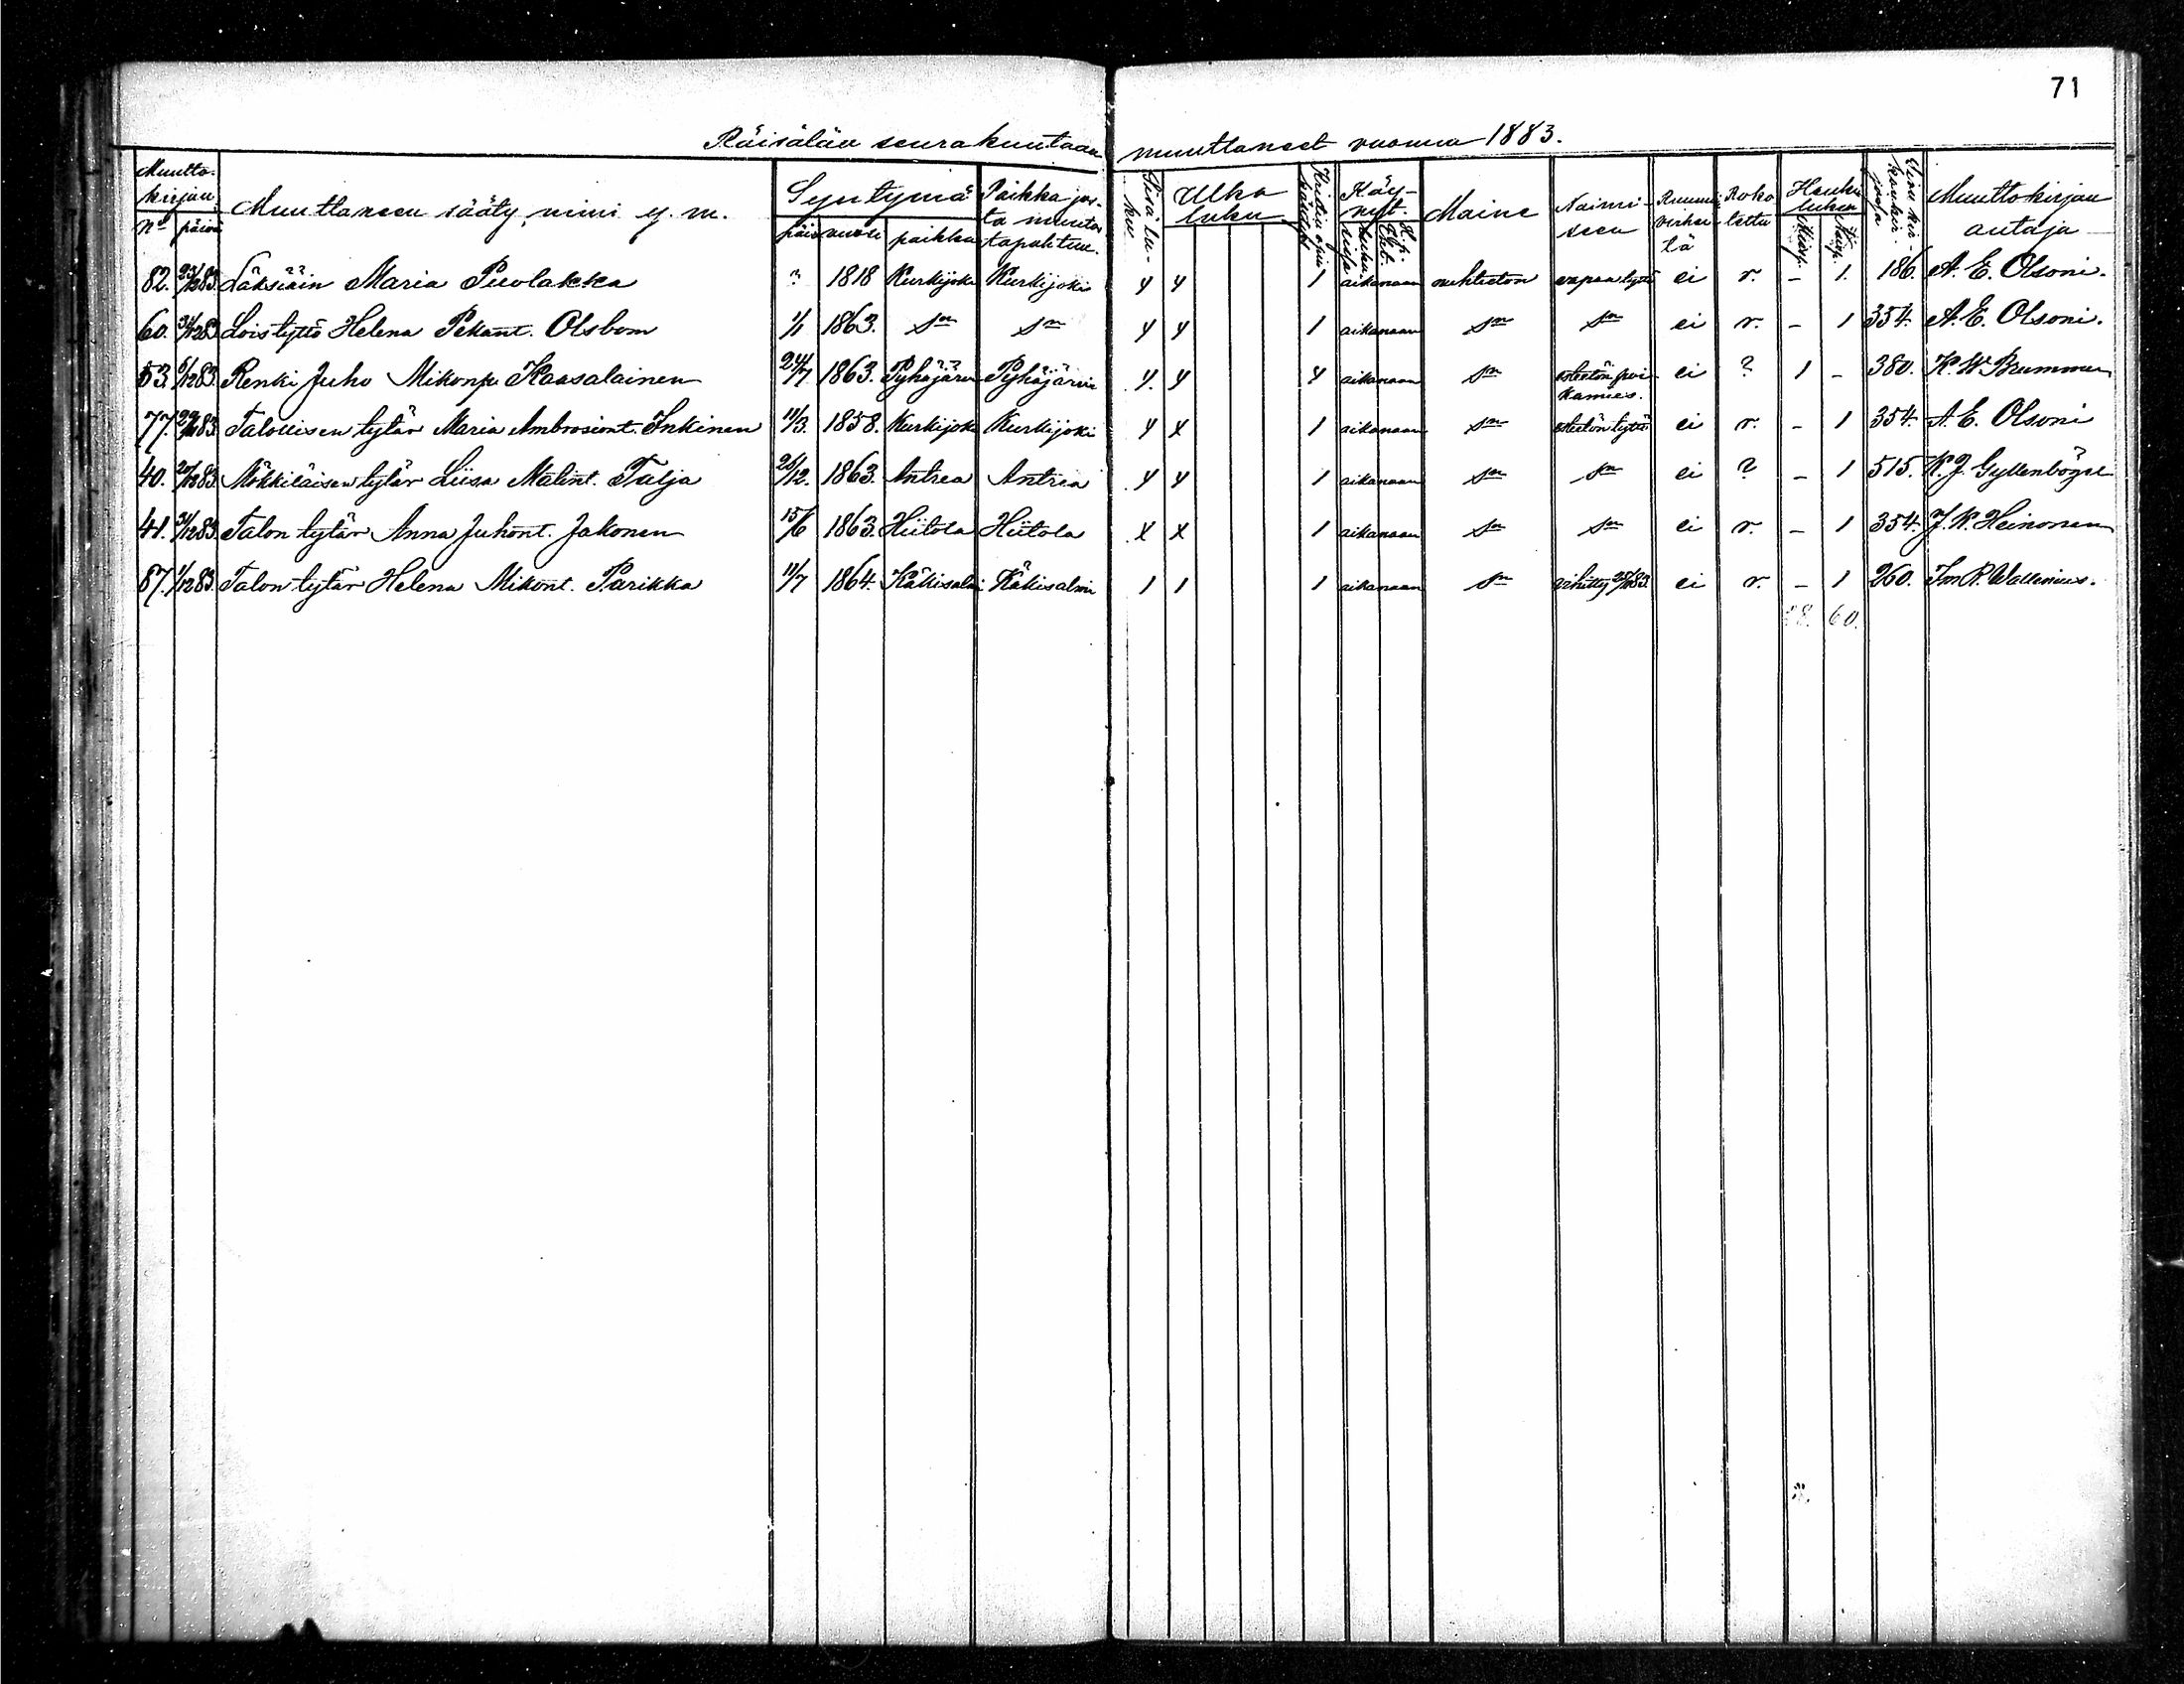 71
Räisälän seurakuntaan muuttaneet vuonna 1883.
Muutto-kirjan No päivä Muuttaneen sääty, nimi y. m. Syntymä päivä vuosi paikka Paikka josta muutto tapahtuu. Sisä lu-ku Ulko luku Käy-nyt. Maine Naimiseen Ruumii virheetä Roko-tettu Henki-luku Miesp. Muuttokirjan antaja
82. 23/283 Läksiäin Maria Puolakka ? 1818 Kurkijoki Kurkijoki y y 1 aikanaan nuhteeton vapaa tyttö ei r. – 1. 186. A. E. Olsoni.
60. 31/1283 Lois tyttö Helena Pekant. Olsbom 1/1 1863. Sm Sm y y 1 aikanaan Sm Sm ei r. – 1 354. A. E. Olsoni.
53. 6/1283 Renki Juho Mikonp. Kaasalainen 24/7 1863. Pyhäjärvi Pyhäjärvi y. y y aikanaan Sm esteetön poikamies. ei ? 1 – 380. K. W. Brummer
77. 83 Talollisen tytär Maria Ambrosiont. Inkinen 11/3. 1858. Kurkijoki Kurkijoki y x 1 aikanaan Sm esteetön tyttö ei r. – 1 354. A. E. Olsoni
40. 20/1283 Mökkiläisen tytär Liisa Matint. Talja 26/12. 1863. Antrea Antrea y y 1 aikanaan Sm Sm ei ? – 1 515. K. J. Gyllenbögel
41. 31/1283 Talon tytär Anna Juhont. Jakonen 15/6 1863. Hiitola Hiitola x x 1 aikanaan Sm Sm ei r. – 1 354. J. K. Heinonen
87. 1/1283 Talon tytär Helena Mikont. Parikka 11/7 1864. Käkisalmi Käkisalmi 1 1 1 aikanaan Sm vihitty 83. ei r. – 1 260. Im R. Wallenius.
60.